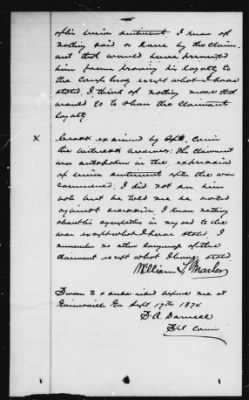 of his union sentiment I know of
nothing said or done by the Claim-
ant that would have prevented
him from proving his loyalty to
the Confederacy except what I have
stated, I think of nothing more that
would go to show the Claimant
loyalty
X Cross examined by Spl. Com
the witness answers: The Claimant
was outspoken in the expression
of union sentiment after the war
commenced, I did not see him
vote but he told me he voted
against secession. I know nothing
about his sympathy in regard to the
war except what I have stated, I
remember no other language of the
claimant except what I have stated
William L. Marler
Sworn to & subscribed before me at
Gainesville Ga Sept 17th 1874
Spl. Com